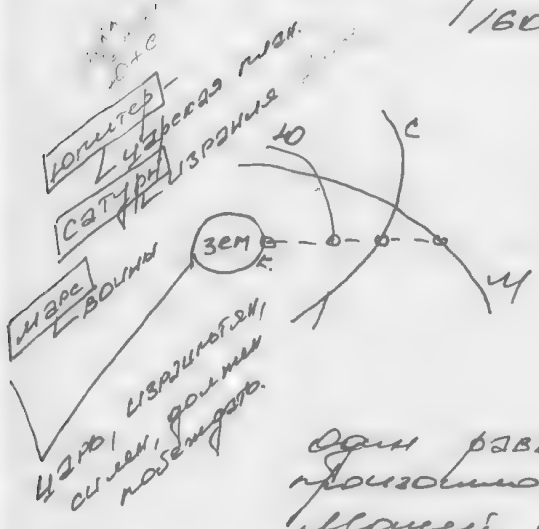 /160
Ю+С
Юпитер
царская план.
Сатурн
Израиля
Марс
войны
Ю
С
М
Зем
К.
Царь, израильтян,
силен, должен
побеждать.
Один рав
произошло